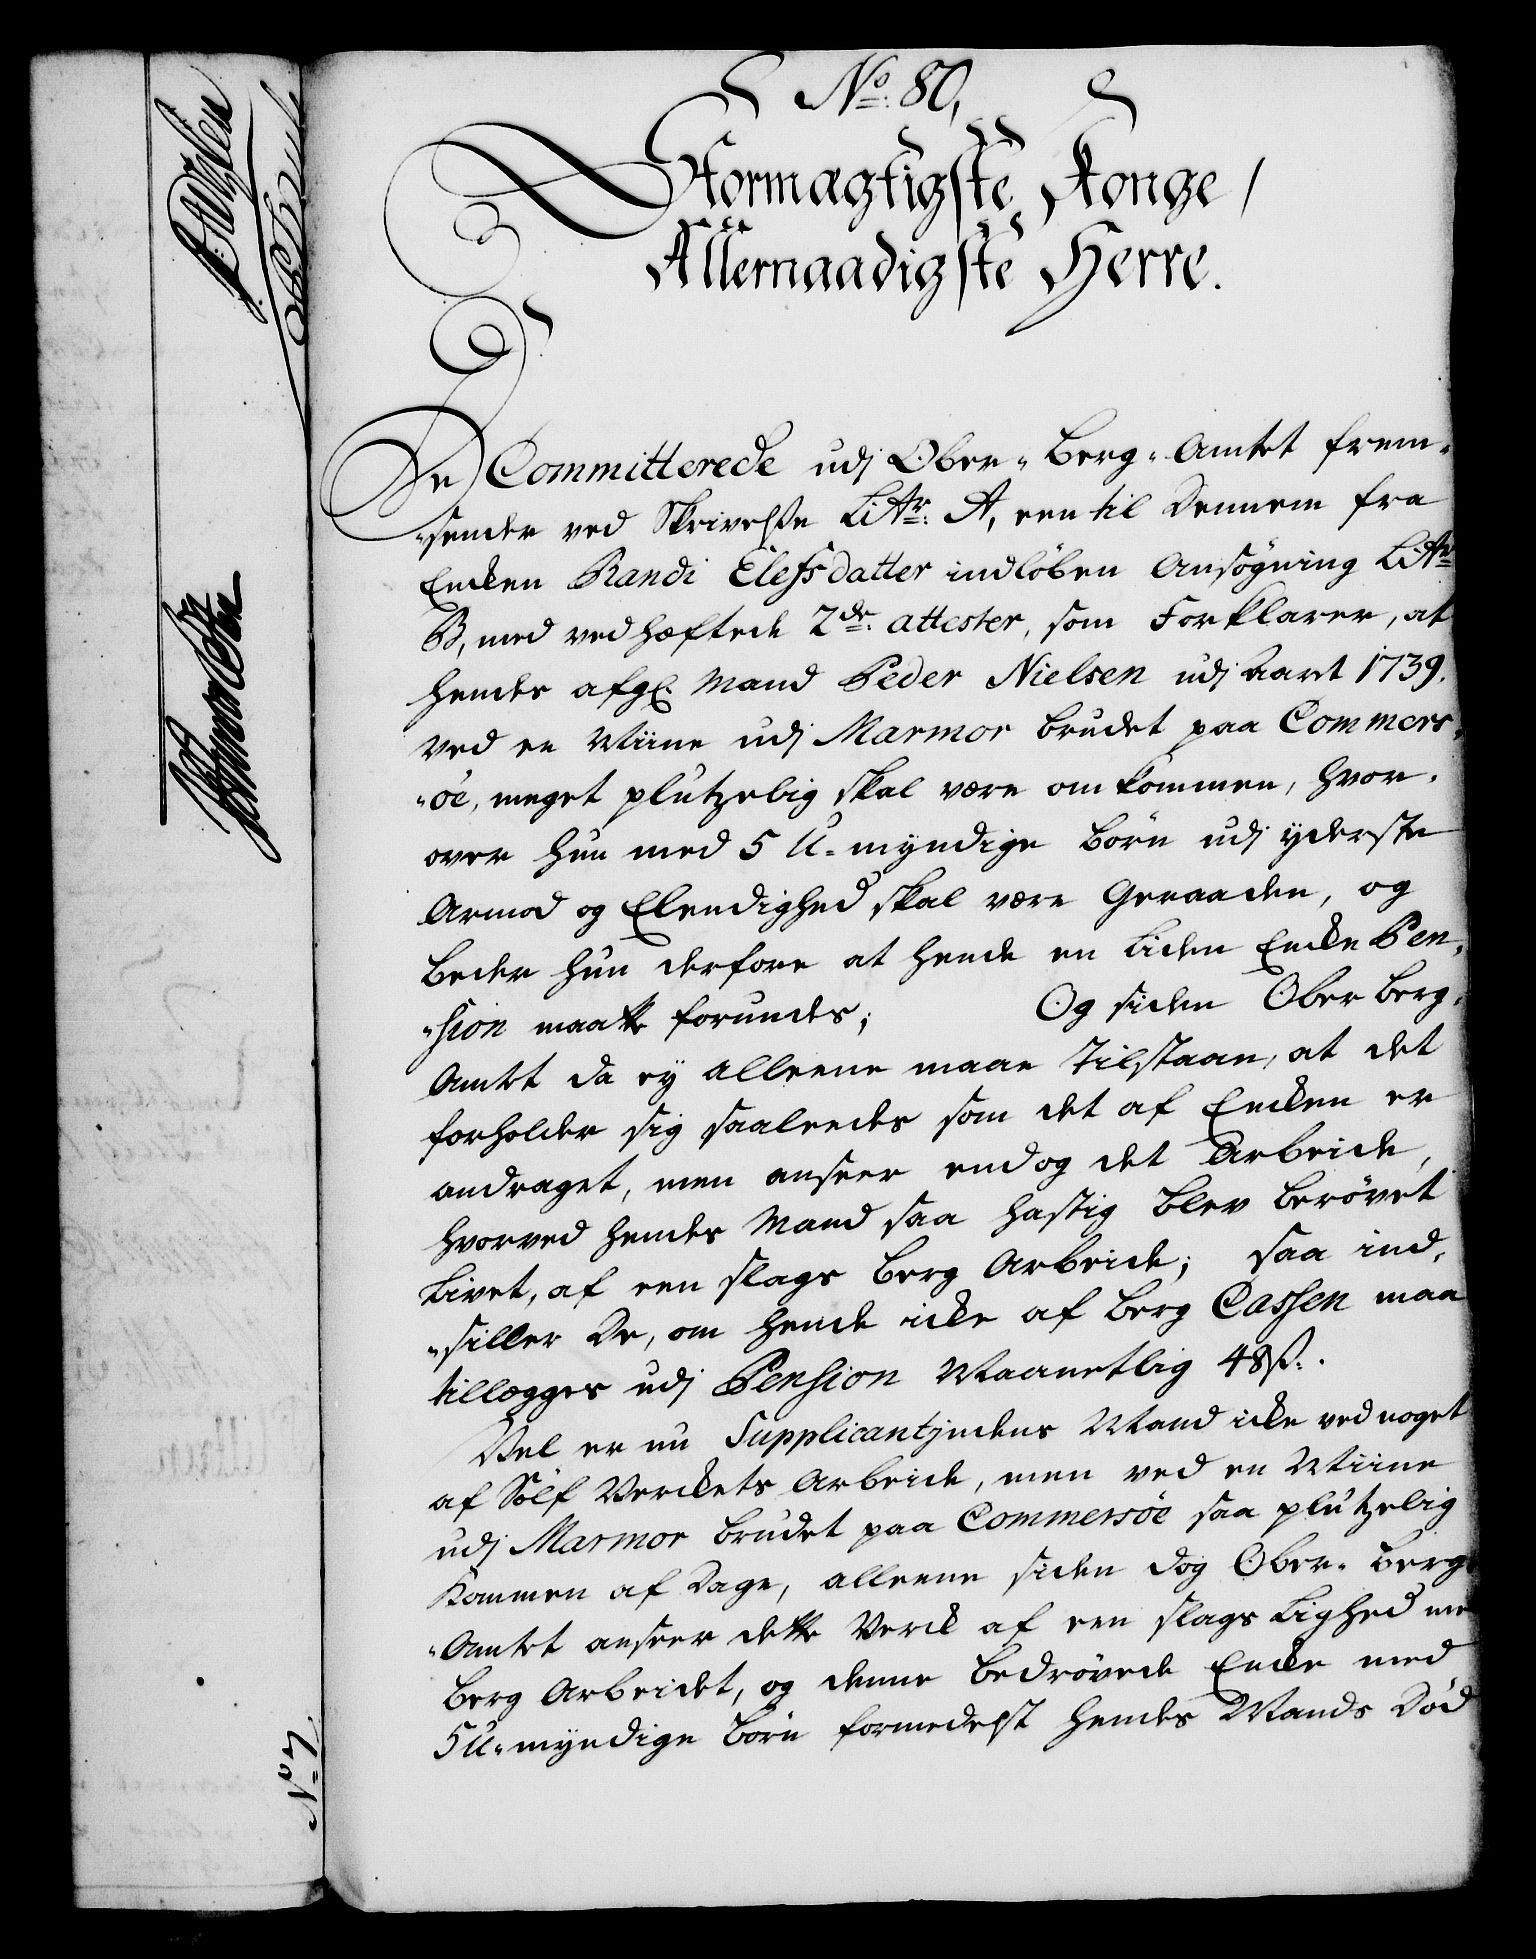 No: 80,
Stormægtigste Konge /
Allernaadigste Herre.
De Committerede udj Ober-Berg-Amtet frem-
-sender ved Skrivelse Litr: A, een til dennem fra
Encken Randi Elefsdatter indløben Ansøgning Litr
B, med ved hæftede 2de: attester, som Forklarer, at
hendes afgl. Mand Peder Nielsen udj Aart 1739.
ved en Miine udj Marmor brudet paa Commers-
-öe, meget plutzelig skal være omkommen, hvor-
over hun med 5 U-myndige børn udj yderste
Armod og Elendighed skal være Geraaden, og
beder hun derfore at hende en liden Encke Pen-
-sion maatte forundes; Og siden Ober berg-
Amtet da ey alleene maae tilstaae, at det
forholder sig saaleedes som det af Encken er
andraget, men anseer endog det Arbeide,
hvorved hendes Mand saa hastig blev berøvet
Livet, af een slags berg Arbeide; saa ind-
-stiller De, om hende icke af berg Cassen maa
tillegges udj Pension Maanetlig 48ß.
Vel er nu Supplicantjndens Mand icke ved noget
af Sølf Verckets Arbeide, men ved en Miine
udj Marmor brudet paa Commersöe saa plutzelig
kommen af Dage, alleene siden dog Ober-berg-
-Amtet anseer dette Verck af een slags Lighed me
berg Arbeidet, og denne bedrøvede Encke med
5 U-myndige børn formedelst hendes Mands Død
No 7